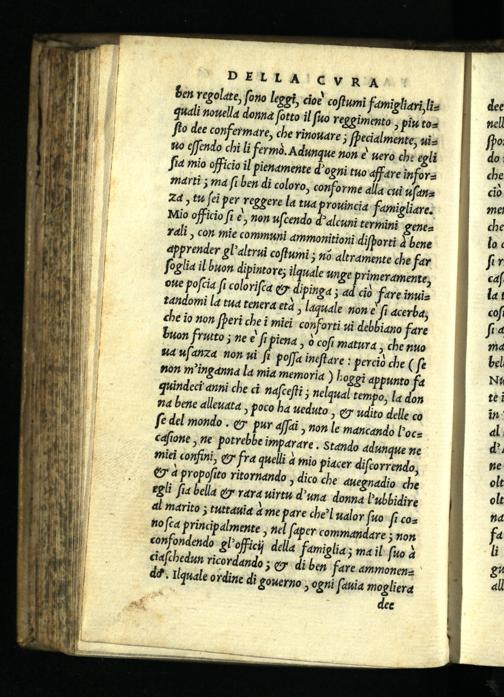 DELLA CVRA
ben regolate, sono leggi, cioè costumi famigliari, li=
quali nouella donna sotto il suo reggimento, piu to=
sto dee confermare, che rinouare; specialmente, ui=
uo essendo chi li fermò. Adunque non è uero che egli
sia mio officio il pienamente d'ogni tuo affare infor=
marti; ma si ben di coloro, conforme alla cui usan=
za, tu sei per reggere la tua prouincia famigliare.
Mio officio si è, non uscendo d'alcuni termini gene=
rali, con mie communi ammonitioni disporti à bene
apprender gl'altrui costumi; nō altramente che far
soglia il buon dipintore; ilquale unge primeramente,
oue poscia si colorisca & dipinga; ad ciò fare inui=
tandomi la tua tenera età, laquale non è si acerba,
che io non speri che i miei conforti ui debbiano fare
buon frutto; ne è si piena, ò cosi matura, che nuo
ua usanza non ui si possa inestare: perciò che (se
non m'inganna la mia memoria) hoggi appunto fa
quindeci anni che ci nascesti; nelqual tempo, la don
na bene alleuata, poco ha ueduto, & udito delle co
se del mondo. & pur assai, non le mancando l'oc=
casione, ne potrebbe imparare. Stando adunque ne
miei confini, & fra quelli à mio piacer discorrendo,
& à proposito ritornando, dico che auegnadio che
egli sia bella & rara uirtu d'una donna l'ubbidire
al marito; tuttauia à me pare che'l ualor suo si co=
nosca principalmente, nel saper commandare; non
confondendo gl'officij della famiglia; ma il suo à
ciaschedun ricordando; & di ben fare ammonen=
do. Ilquale ordine di gouerno, ogni sauia mogliera
dee